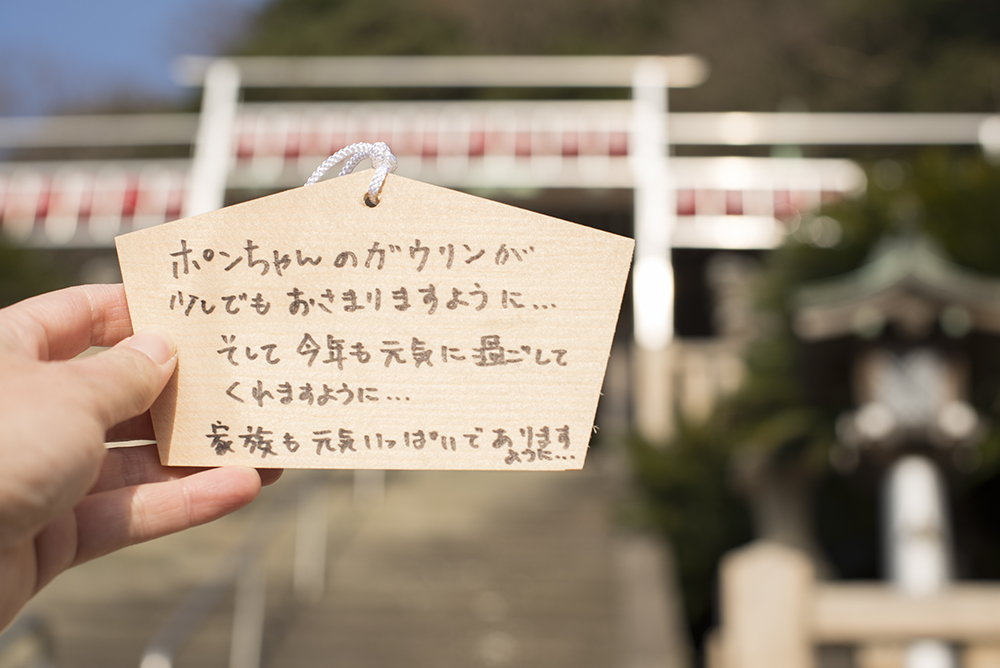 ポンちゃんのガウリンが
少しでもおさまりますように…
そして今年も元気に過ごして
くれますように…
家族も元気いっぱいであります
ように…